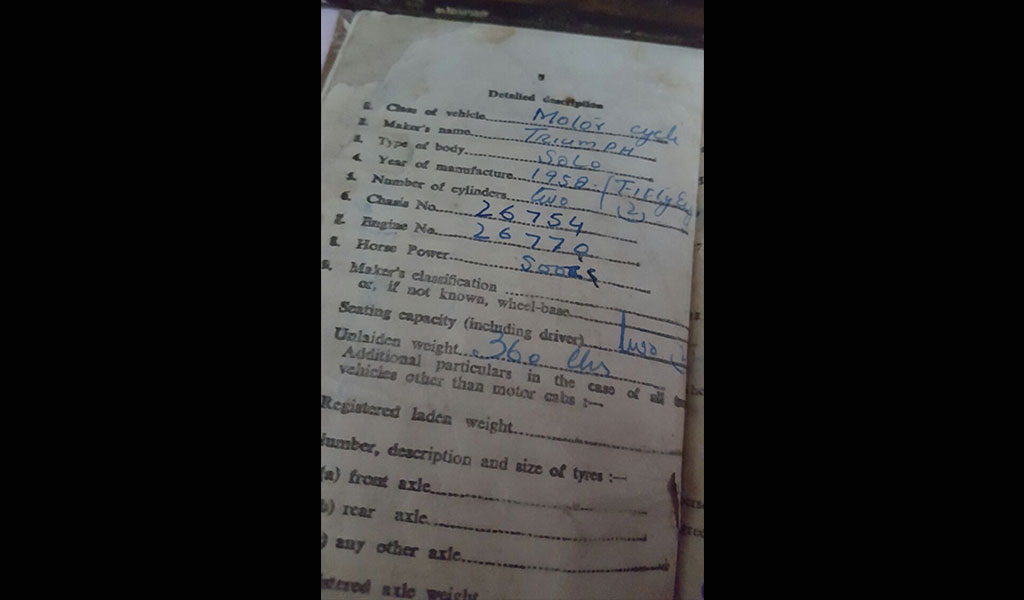 Detailed description
1. Class of vehicle Motor cycle
2. Maker's name TRIUMPH
3. Type of body SOLO
4. Year of manufacture 1958
5. Number of cylinders two (2)
6. Chasis No. 26754
7. Engine No. 26770
8. Horse Power 500cc
9. Maker's classification
or, if not known, wheel-base
Seating capacity (including driver) two
Unlaiden weight 360 lbs
Additional particulars in the case of all
vehicles other than motor cabs :—
Registered laden weight
Number, description and size of tyres :—
(a) front axle
(b) rear axle
any other axle
axle weight